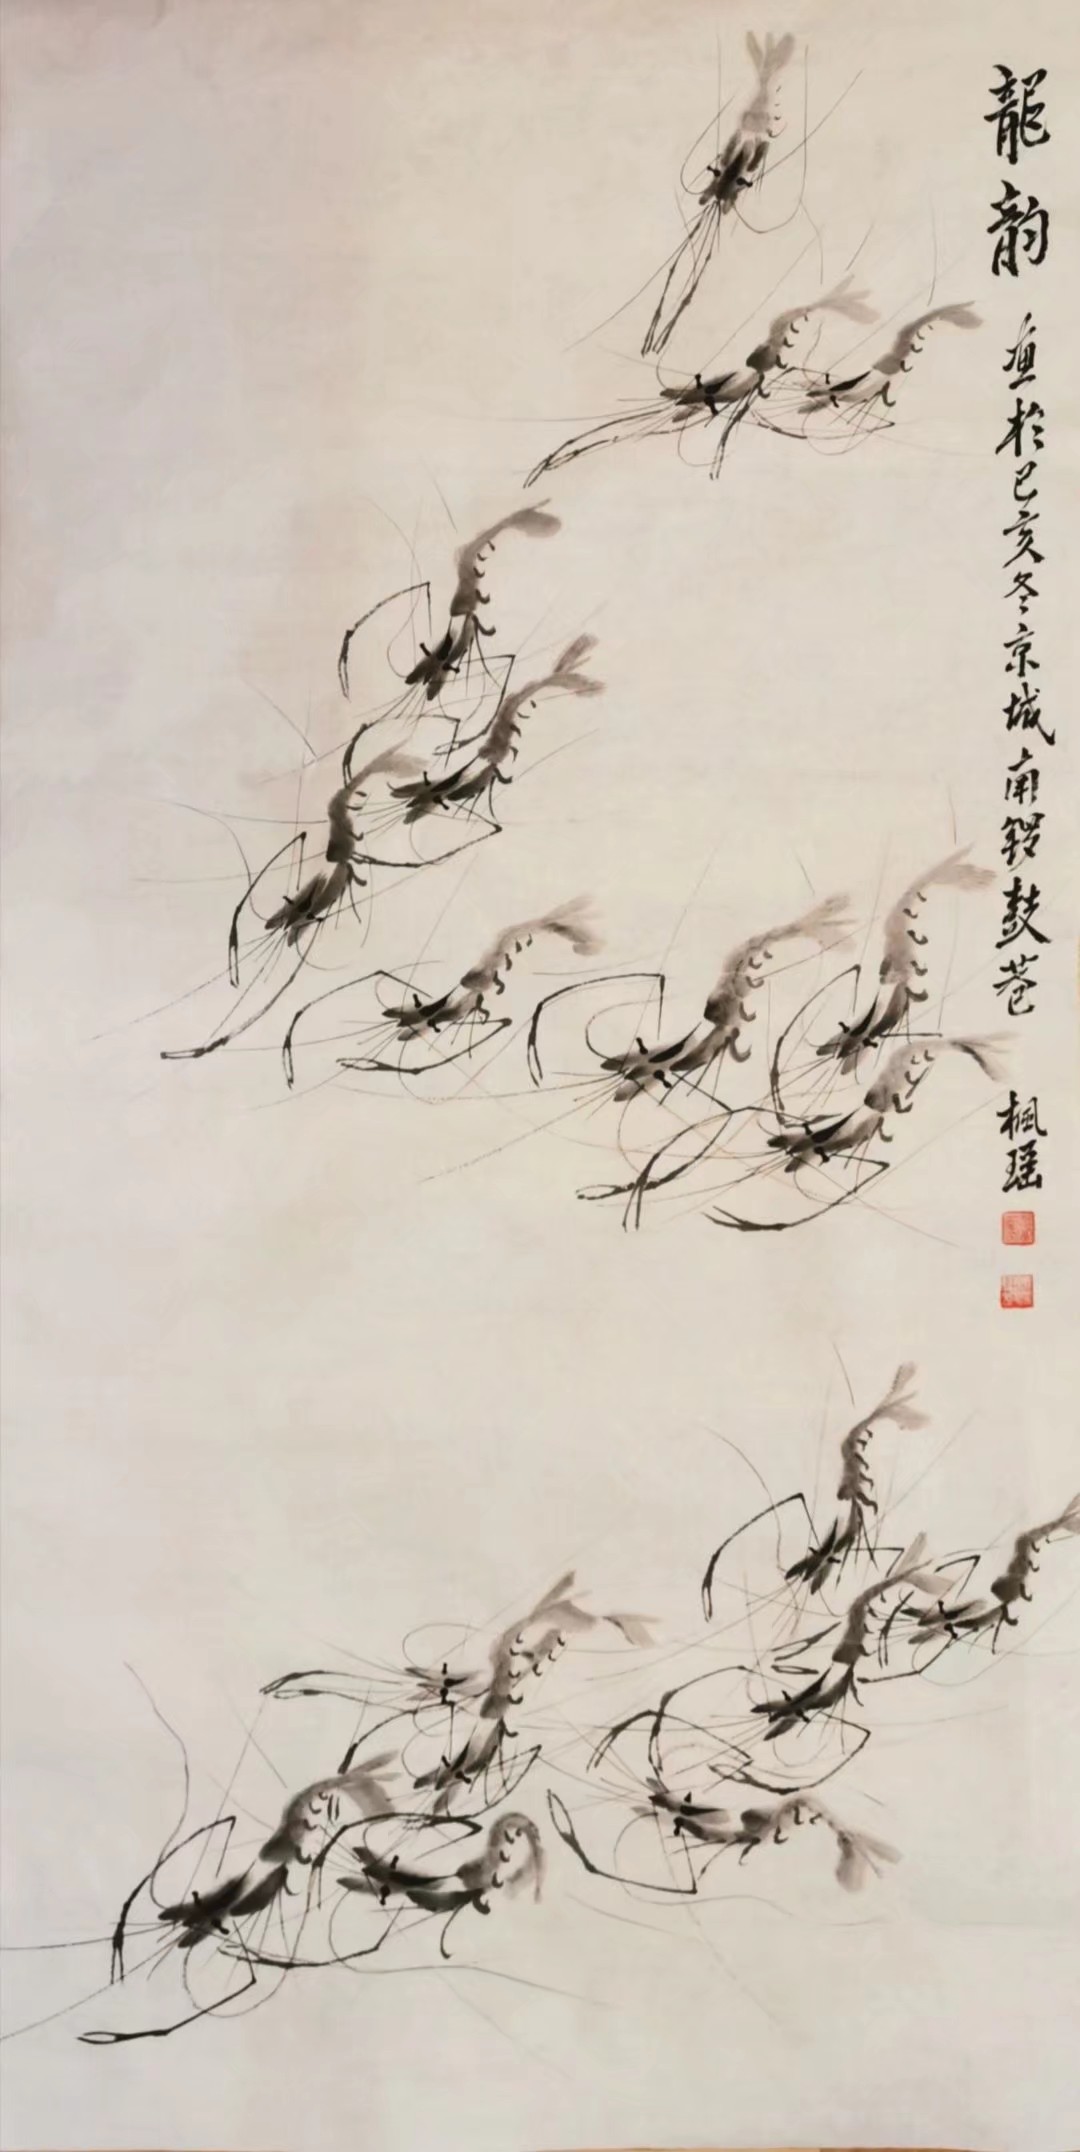 龍韵
画於己亥冬京城南锣鼓巷
楓瑶